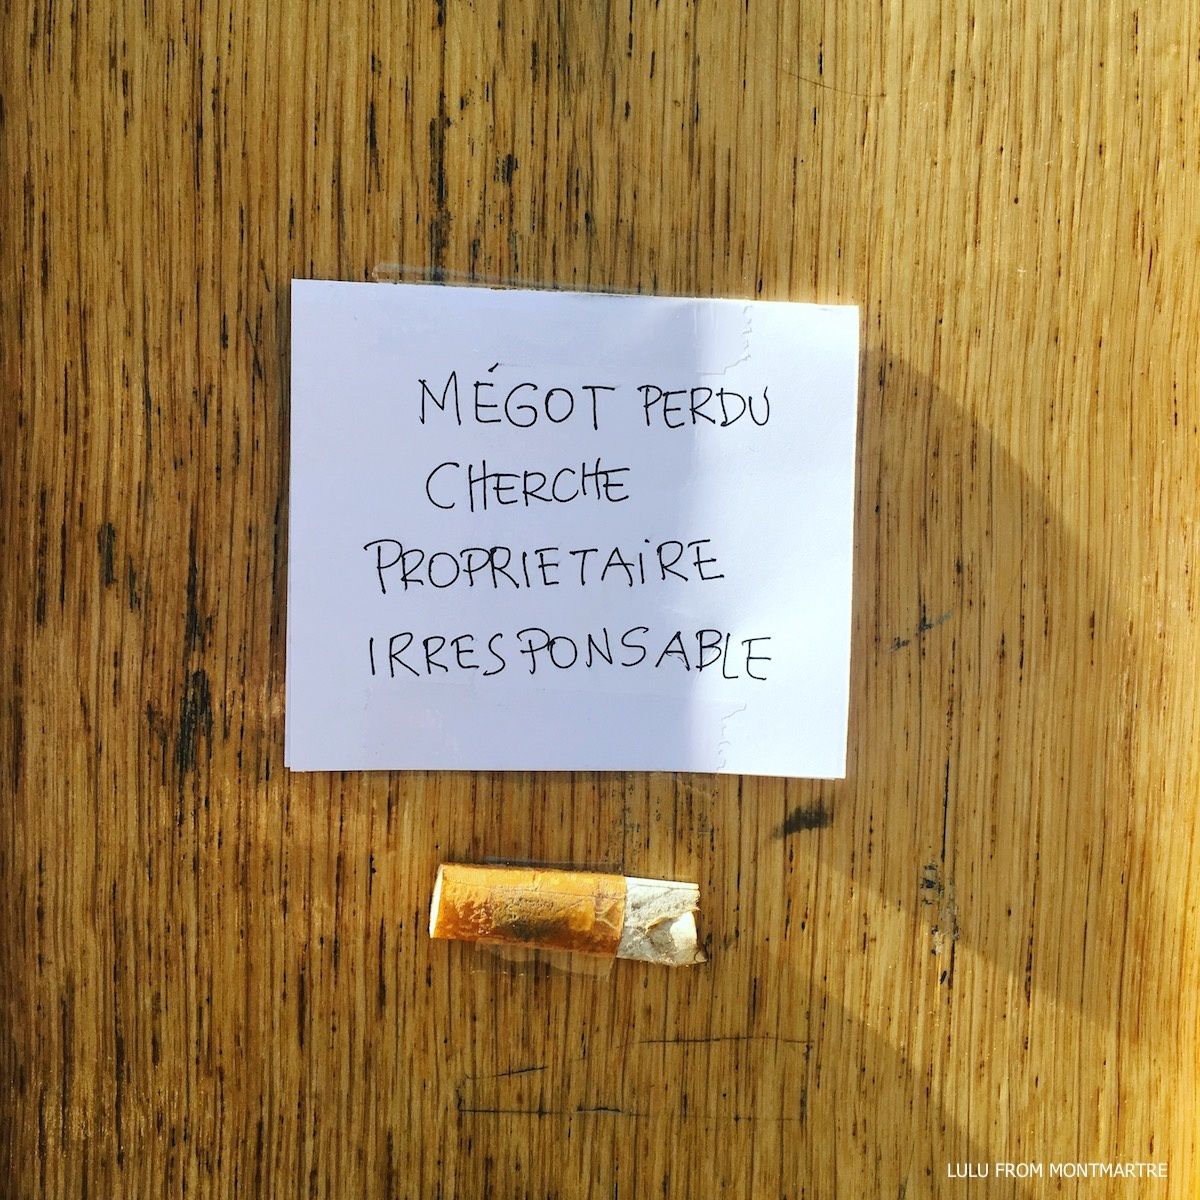 MÉGOT PERDU
CHERCHE
PROPRIETAIRE
IRRESPONSABLE
LULU FROM MONTMARTRE